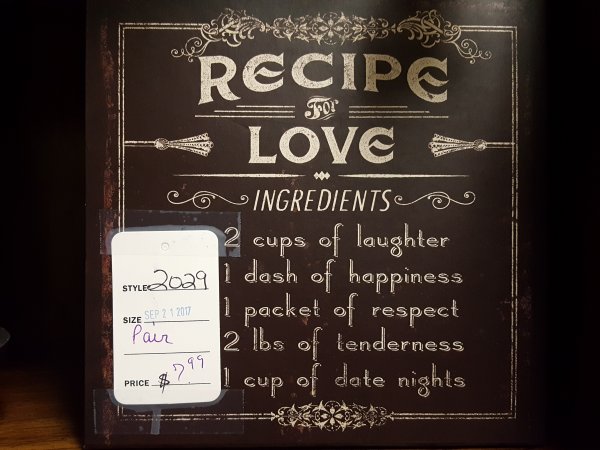 RECIPE
For
LOVE
INGREDIENTS
2 cups of laughter
1 dash of happiness
1 packet of respect
2 lbs of tenderness
1 cup of date nights
STYLE 2029
SIZE SEP 21 2017
Pair
PRICE $7.99